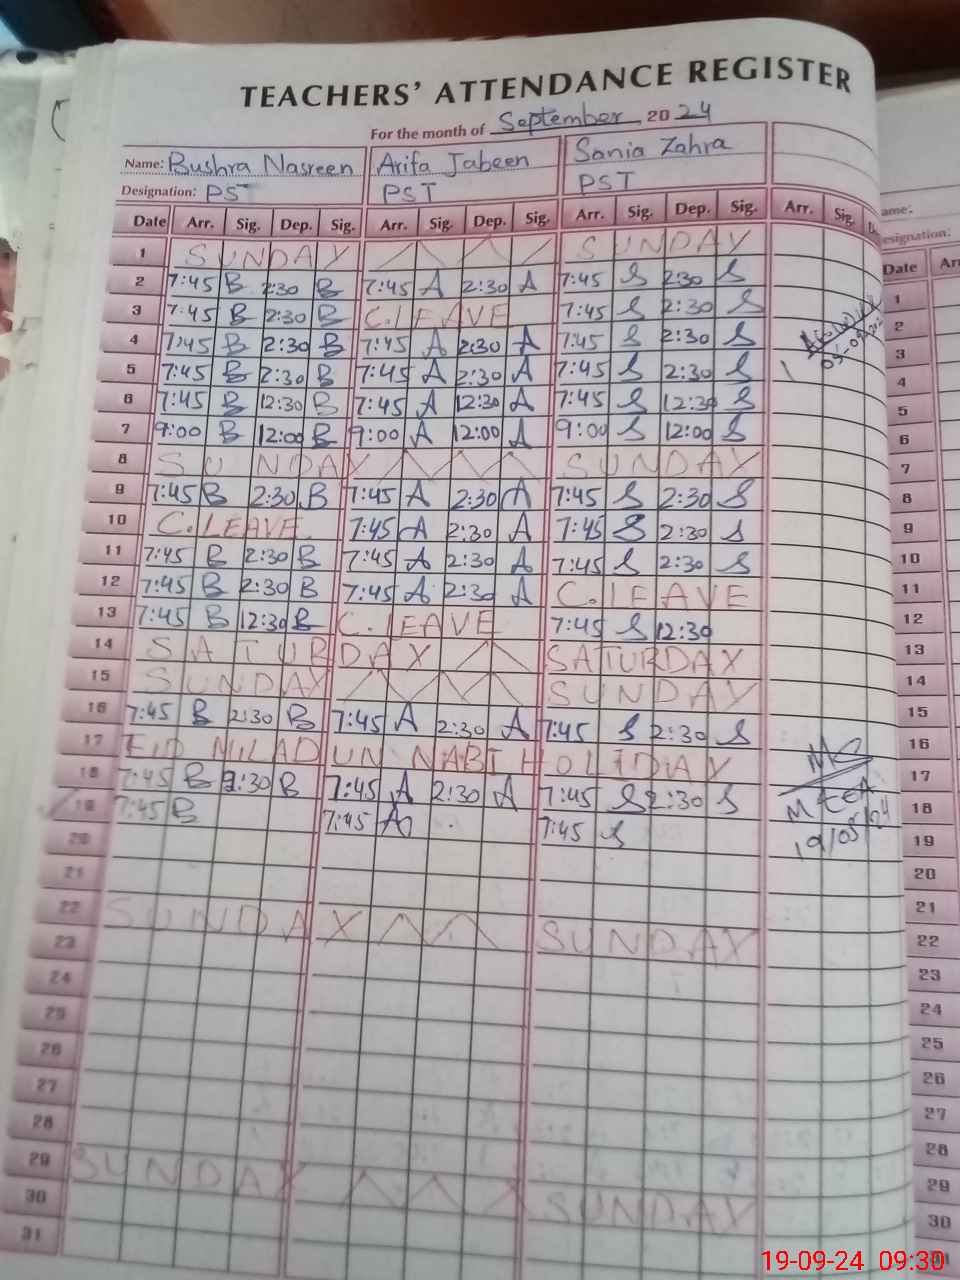 TEACHERS' ATTENDANCE REGISTER
For the month of September, 2024
Name: Bushra Nasreen Arifa Jabeen Sania Zahra
Designation: PST PST PST
Date Arr. Sig. Dep. Sig. Arr. Sig. Dep. Sig. Arr. Sig. Dep. Sig. Arr. Sig.
1 SUNDAY SUNDAY
2 7:45 B 2:30 B 7:45 A 2:30 A 7:45 S 2:30 S
3 7:45 B 2:30 B C.LEAVE 7:45 S 2:30 S
4 7:45 B 2:30 B 7:45 A 2:30 A 7:45 S 2:30 S
5 7:45 B 2:30 B 7:45 A 2:30 A 7:45 S 2:30 S
6 7:45 B 12:30 B 7:45 A 12:30 A 7:45 S 12:30 S
7 9:00 B 12:00 B 9:00 A 12:00 A 9:00 S 12:00 S
8 SUNDAY SUNDAY
9 7:45 B 2:30 B 7:45 A 2:30 A 7:45 S 2:30 S
10 C.LEAVE 7:45 A 2:30 A 7:45 S 2:30 S
11 7:45 B 2:30 B 7:45 A 2:30 A 7:45 S 2:30 S
12 7:45 B 2:30 B 7:45 A 2:30 A C.LEAVE
13 7:45 B 12:30 B C.LEAVE 7:45 S 12:30
14 SATURDAY SATURDAY
15 SUNDAY SUNDAY
16 7:45 B 2:30 B 7:45 A 2:30 A 7:45 S 2:30 S
17 EID MILAD UN NABI HOLIDAY
18 7:45 B 2:30 B 7:45 A 2:30 A 7:45 S 2:30 S
19 7:45 B 7:45 A 7:45 S
MEEA
19/09/24
20
21
22 SUNDAY SUNDAY
23
24
25
26
27
28
29 SUNDAY SUNDAY
30
31
ame:
esignation:
Date Arr
1
2
3
4
5
6
7
8
9
10
11
12
13
14
15
16
17
18
19
20
21
22
23
24
25
26
27
28
29
30
19-09-24 09:30